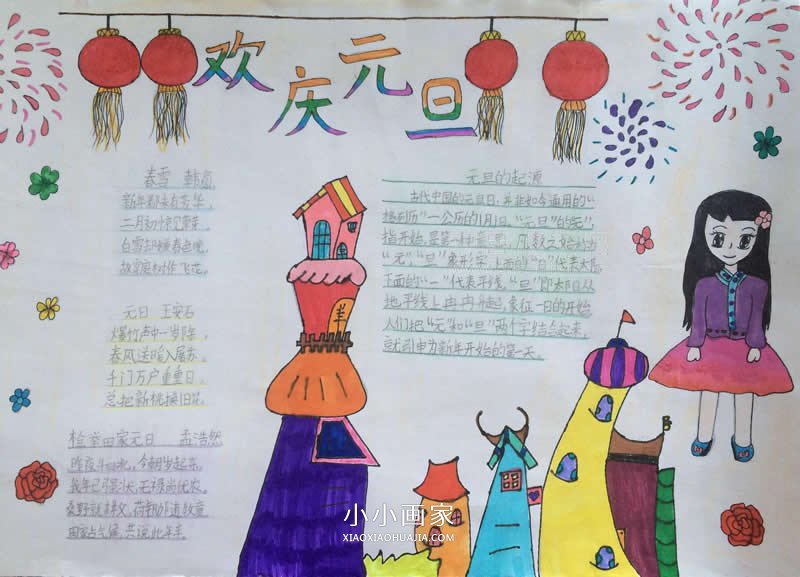 欢庆元旦
春雪 韩愈
新年都未有芳华，
二月初惊见草芽。
白雪却嫌春色晚，
故穿庭树作飞花。
元日 王安石
爆竹声中一岁除，
春风送暖入屠苏。
千门万户曈曈日，
总把新桃换旧符。
田家元日 孟浩然
昨夜斗回北，今朝岁起东。
我年已强壮，无禄尚忧农。
桑野就耕父，荷锄随牧童。
田家占气候，共说此年丰。
元旦的起源
古代中国的元旦日，并非如今通用的“
格利历”一公历的1月1日。“元旦”的“元”，
指开始，是第一个意思，凡数之始称为
“元”；“旦”，象形字，上面的“日”代表太阳，
下面的“一”代表平线，“旦”即太阳从
地平线上冉冉升起，象征一日的开始。
人们把“元”和“旦”两个字结合起来，
就引申为新年开始的第一天。
小小画家
XIAOXIAOHUAJIA.COM